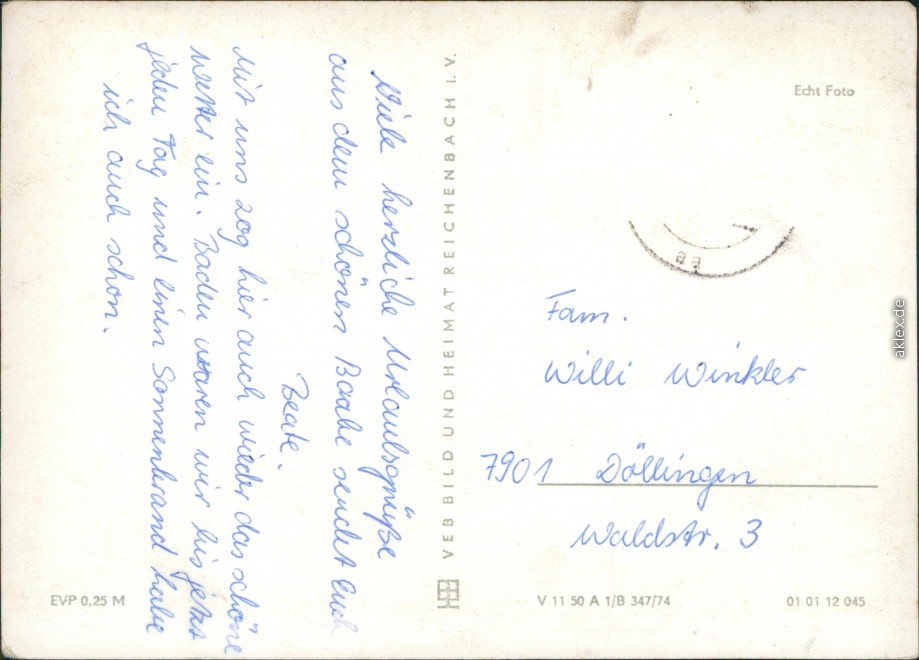 Viele herzliche Urlaubsgrüße
aus dem schönen Baabe sendet Euch
Beate.
Mit uns zog hier auch wieder das schöne
Wetter ein. Baden waren wir bis jetzt
jeden Tag und einen Sonnenbrand habe
ich auch schon.
EVP 0,25 M
VEB BILD UND HEIMAT REICHENBACH I. V.
Echt Foto
Fam.
Willi Winkler
7901 Döllingen
Waldstr. 3
V 11 50 A 1/B 347/74
01 01 12 045
aklex.de